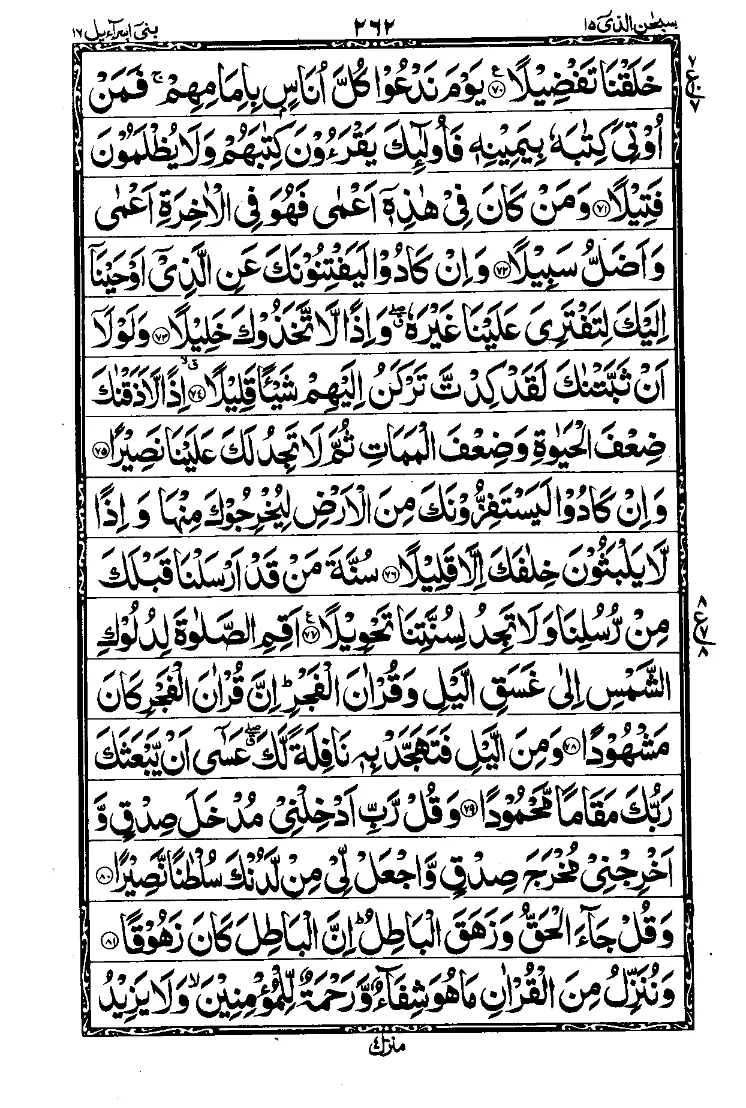 سبحٰن الذی ۱۵ ۲۶۲ بنی اسرآءیل ۱۷
خَلَقْنَا تَفْضِیْلًا ﴿۷۰﴾ یَوْمَ نَدْعُوْا كُلَّ اُنَاسٍۭ بِاِمَامِهِمْ ۚ فَمَنْ
اُوْتِیَ كِتٰبَهٗ بِیَمِیْنِهٖ فَاُولٰٓىِٕكَ یَقْرَءُوْنَ كِتٰبَهُمْ وَلَا یُظْلَمُوْنَ
فَتِیْلًا ﴿۷۱﴾ وَمَنْ كَانَ فِیْ هٰذِهٖۤ اَعْمٰی فَهُوَ فِی الْاٰخِرَةِ اَعْمٰی
وَاَضَلُّ سَبِیْلًا ﴿۷۲﴾ وَاِنْ كَادُوْا لَیَفْتِنُوْنَكَ عَنِ الَّذِیْۤ اَوْحَیْنَاۤ
اِلَیْكَ لِتَفْتَرِیَ عَلَیْنَا غَیْرَهٗ ۖۗ وَاِذًا لَّاتَّخَذُوْكَ خَلِیْلًا ﴿۷۳﴾ وَلَوْلَاۤ
اَنْ ثَبَّتْنٰكَ لَقَدْ كِدْتَّ تَرْكَنُ اِلَیْهِمْ شَیْـًٔا قَلِیْلًا ﴿۷۴﴾ اِذًا لَّاَذَقْنٰكَ
ضِعْفَ الْحَیٰوةِ وَضِعْفَ الْمَمَاتِ ثُمَّ لَا تَجِدُ لَكَ عَلَیْنَا نَصِیْرًا ﴿۷۵﴾
وَاِنْ كَادُوْا لَیَسْتَفِزُّوْنَكَ مِنَ الْاَرْضِ لِیُخْرِجُوْكَ مِنْهَا وَاِذًا
لَّا یَلْبَثُوْنَ خِلٰفَكَ اِلَّا قَلِیْلًا ﴿۷۶﴾ سُنَّةَ مَنْ قَدْ اَرْسَلْنَا قَبْلَكَ
مِنْ رُّسُلِنَا وَلَا تَجِدُ لِسُنَّتِنَا تَحْوِیْلًا ﴿۷۷﴾ اَقِمِ الصَّلٰوةَ لِدُلُوْكِ
الشَّمْسِ اِلٰی غَسَقِ الَّیْلِ وَقُرْاٰنَ الْفَجْرِ ؕ اِنَّ قُرْاٰنَ الْفَجْرِ كَانَ
مَشْهُوْدًا ﴿۷۸﴾ وَمِنَ الَّیْلِ فَتَهَجَّدْ بِهٖ نَافِلَةً لَّكَ ۖۗ عَسٰۤی اَنْ یَّبْعَثَكَ
رَبُّكَ مَقَامًا مَّحْمُوْدًا ﴿۷۹﴾ وَقُلْ رَّبِّ اَدْخِلْنِیْ مُدْخَلَ صِدْقٍ وَّ
اَخْرِجْنِیْ مُخْرَجَ صِدْقٍ وَّاجْعَلْ لِّیْ مِنْ لَّدُنْكَ سُلْطٰنًا نَّصِیْرًا ﴿۸۰﴾
وَقُلْ جَآءَ الْحَقُّ وَزَهَقَ الْبَاطِلُ ؕ اِنَّ الْبَاطِلَ كَانَ زَهُوْقًا ﴿۸۱﴾
وَنُنَزِّلُ مِنَ الْقُرْاٰنِ مَا هُوَ شِفَآءٌ وَّرَحْمَةٌ لِّلْمُؤْمِنِیْنَ ۙ وَلَا یَزِیْدُ
منزل ۴